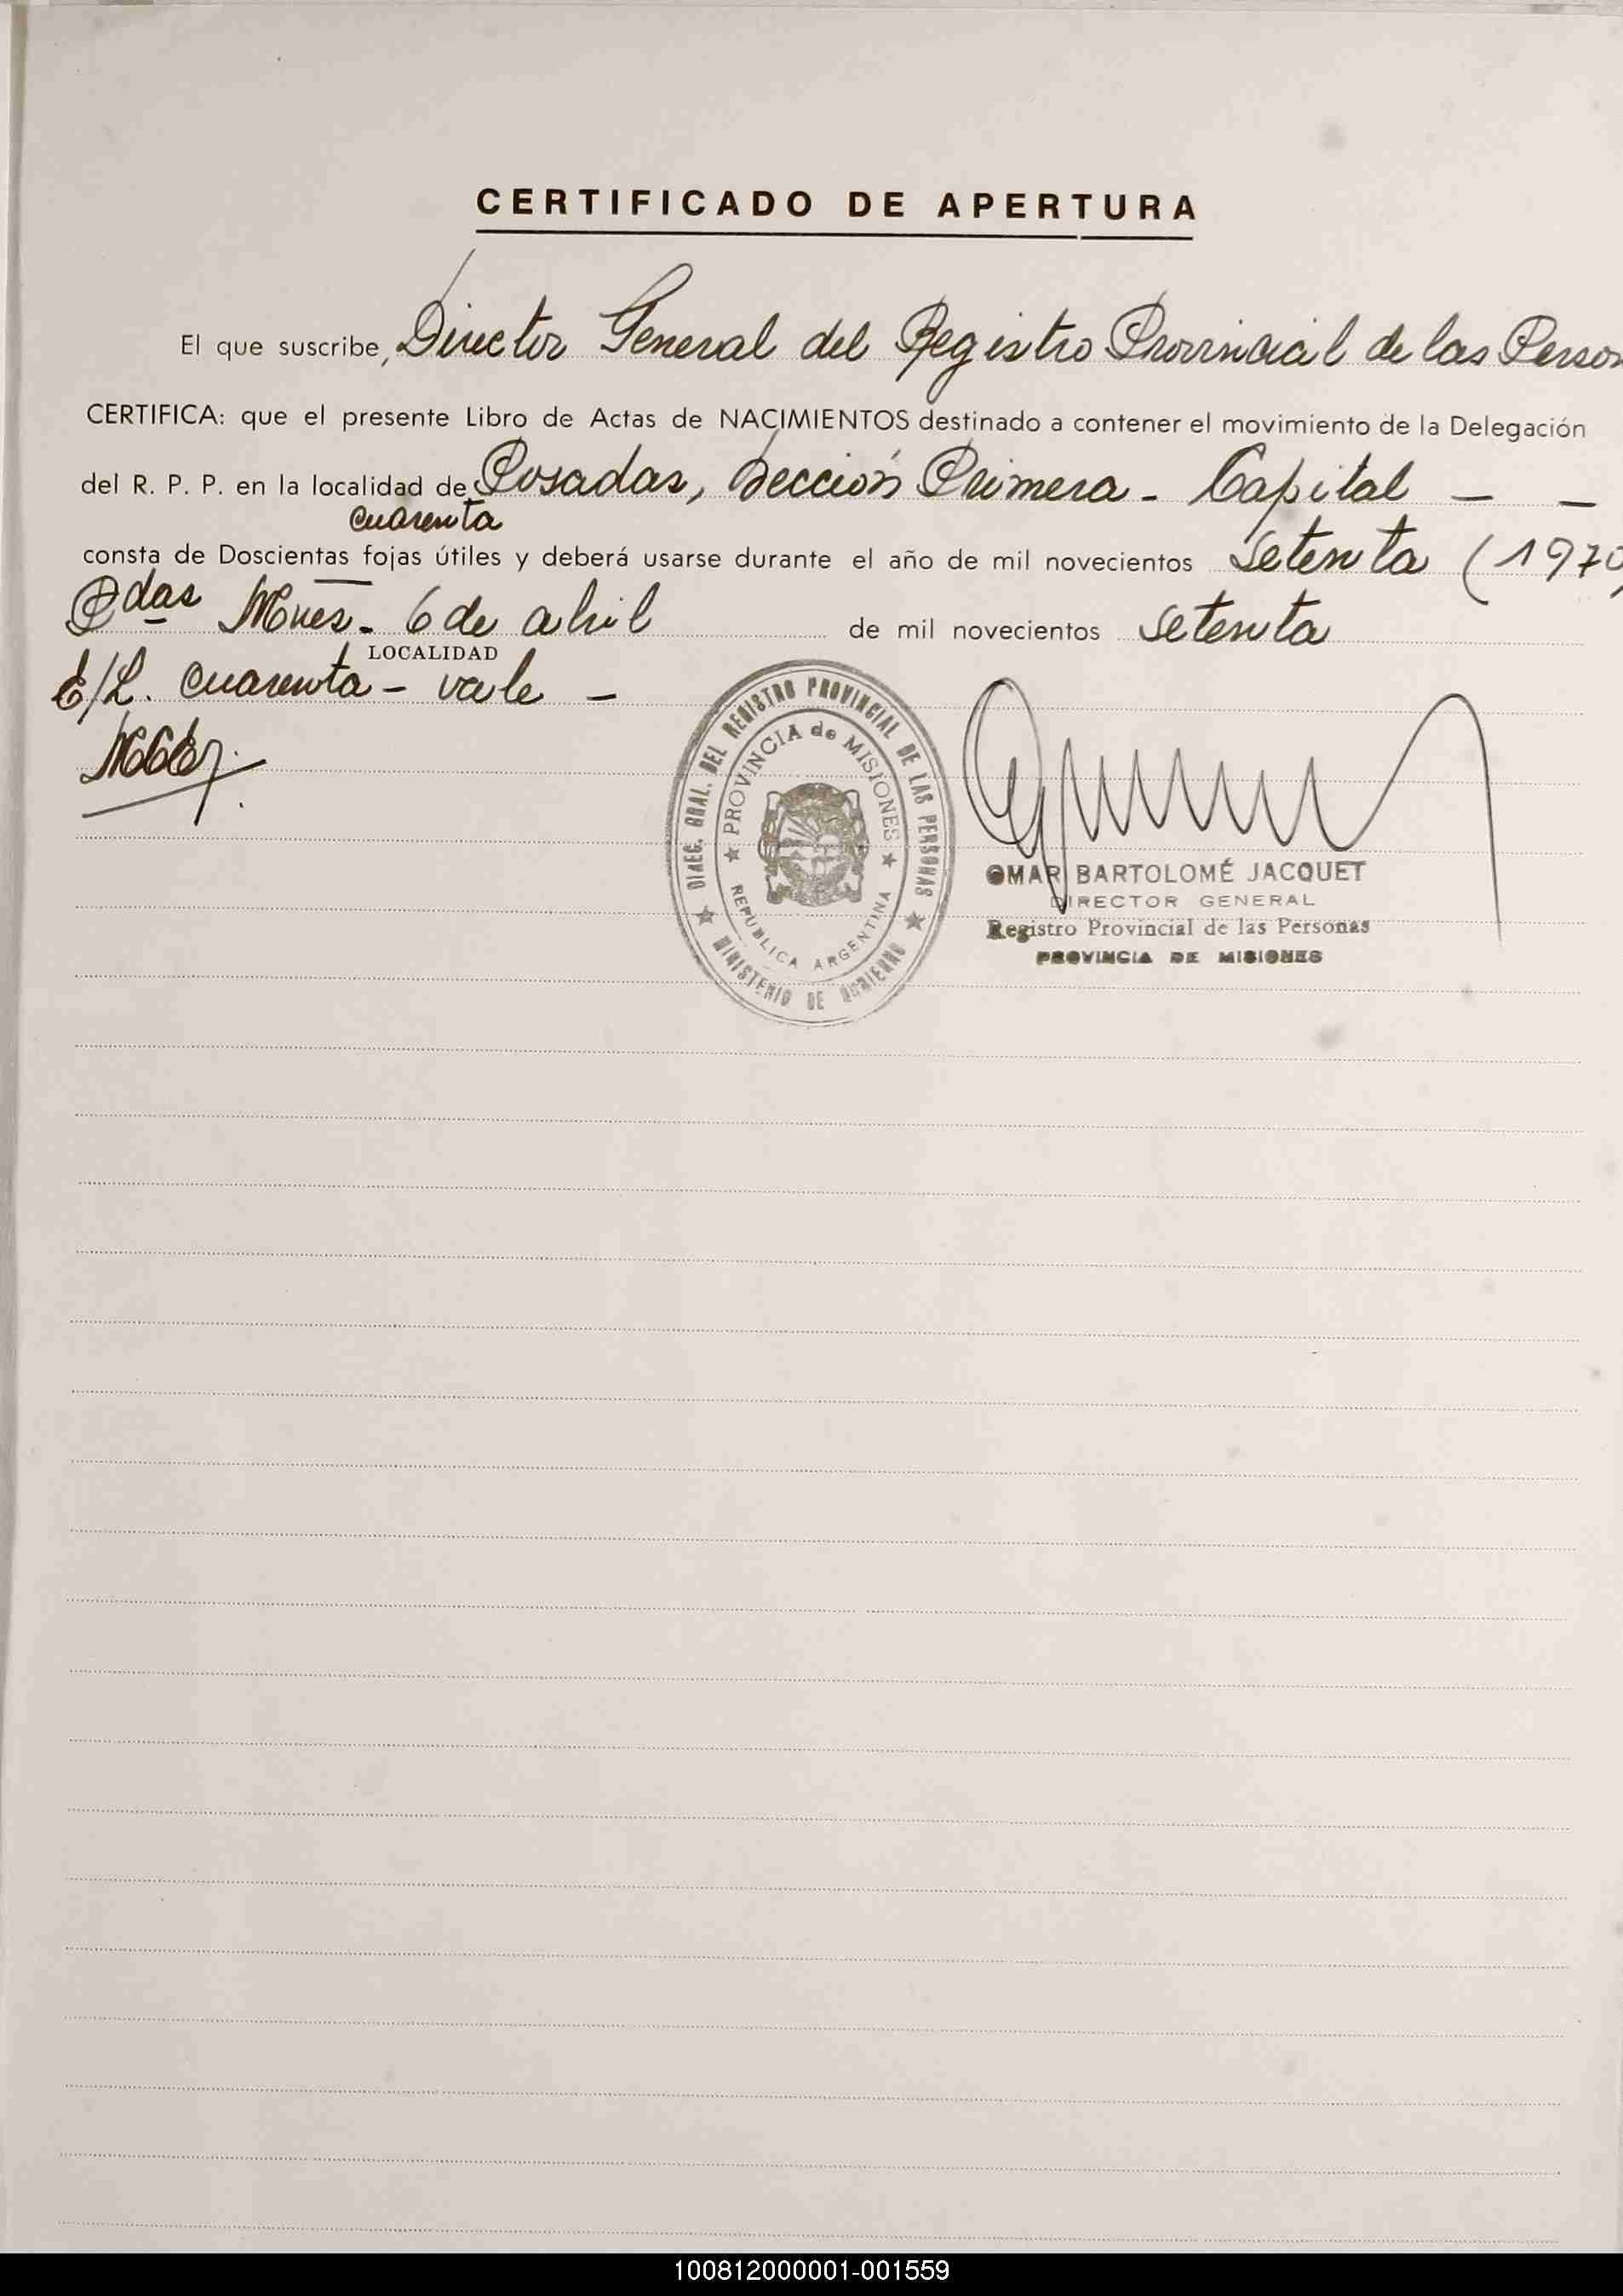 CERTIFICADO DE APERTURA
El que suscribe, Director General del Registro Provincial de las Person
CERTIFICA: que el presente Libro de Actas de NACIMIENTOS destinado a contener el movimiento de la Delegación
del R. P. P. en la localidad de Posadas, Sección Primera - Capital — —
cuarenta
consta de Doscientas fojas útiles y deberá usarse durante el año de mil novecientos setenta (1970
Pdas Mnes. 6 de abril de mil novecientos setenta
LOCALIDAD
E/L. cuarenta - vale —
DIREC. GRAL. DEL REGISTRO PROVINCIAL DE LAS PERSONAS
PROVINCIA de MISIONES
REPUBLICA ARGENTINA
MINISTERIO DE GOBIERNO
OMAR BARTOLOMÉ JACQUET
DIRECTOR GENERAL
Registro Provincial de las Personas
PROVINCIA DE MISIONES
100812000001-001559